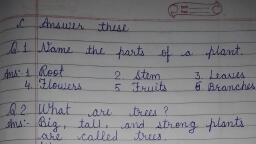 c Answer these
Q.1 Name the parts of a plant.
Ans:- 1 Root 2 Stem 3. Leaves
4. Flowers 5 Fruits 6 Branches
Q.2. What are trees?
Ans:- Big, tall, and strong plants
are called trees.